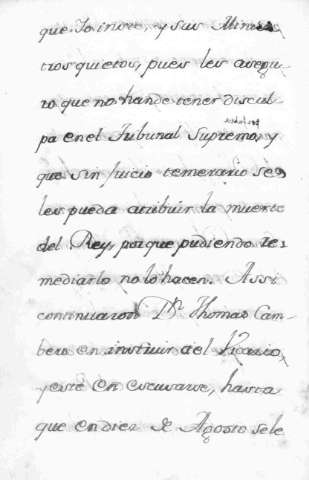 que Io inove, y sus Minis
tros quietos, pues les asegu
ro que no hande tener discul
pa en el Tribunal Supremo, y
que sin juicio temerario se
les pueda atribuir la muerte
del Rey, porque pudiendo re=
mediarlo no lo hacen. Assi
continuaron Dn Thomas Cam
bero en instruir a el Vicario,
y este en escusarse, hasta
que en diez de Agosto se le